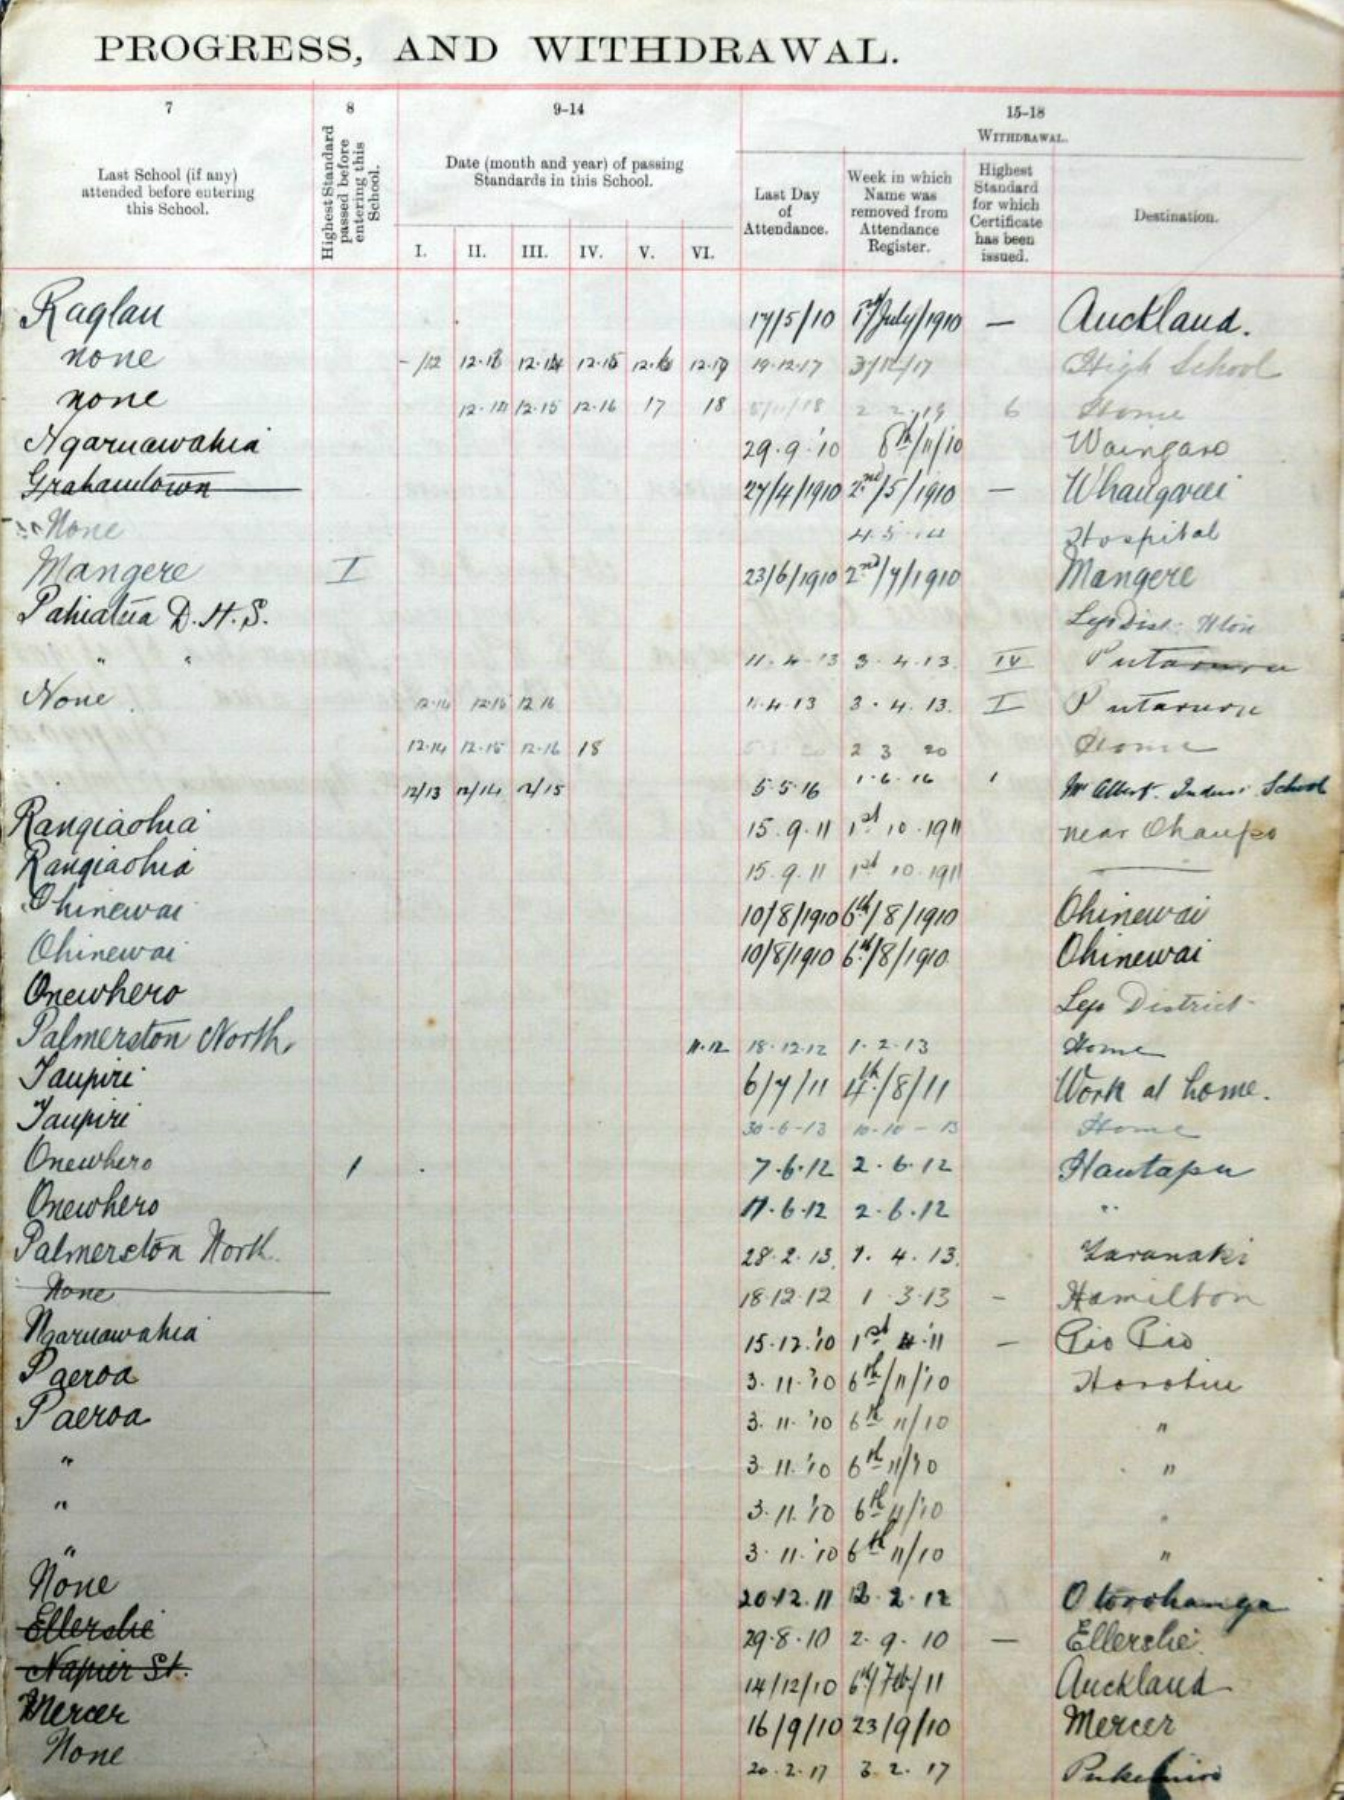 PROGRESS, AND WITHDRAWAL.
7 8 9-14 15-18
WITHDRAWAL.
Last School (if any) attended before entering this School.
Highest Standard passed before entering this School.
Date (month and year) of passing Standards in this School.
I. II. III. IV. V. VI.
Last Day of Attendance.
Week in which Name was removed from Attendance Register.
Highest Standard for which Certificate has been issued.
Destination.
Raglan 17/5/10 July/1910 — Auckland.
none -/12 12.17 19.12.17 High School
none 12.15 12.16 17 18 2 2.19 6 Home
Ngaruawahia 29.9.'10 /11/10 Waingaro
Grahamtown 27/4/1910 2nd/5/1910 — Whangarei
None Hospital
Mangere I 23/6/1910 2nd/7/1910 Mangere
Pahiatua D.H.S. Left Dist.
" " 11.4.13 3.4.13. IV Putaruru
None 12.16 11.4.13 3.4.13. I Putaruru
12.14 12.15 12.16 18 2 3 20 Home
12/13 12/14 12/15 5.5.16 1.6.16 1 Mt Albert. Indus. School
Rangiaohia 15.9.11 1st 10.1911 near Ohaupo
Rangiaohia 15.9.11 1st 10.1911 —
Ohinewai 10/8/1910 6th/8/1910 Ohinewai
Ohinewai 10/8/1910 6th/8/1910 Ohinewai
Onewhero Left District
Palmerston North. 11.12 18.12.12 1.2.13 Home
Taupiri 6/7/11 4th/8/11 Work at home.
Taupiri 30-6-13 10-10-13 Home
Onewhero 1 7.6.12 2.6.12 Hautapu
Onewhero 2.6.12 "
Palmerston North 28.2.13. 4.13. Taranaki
None 18.12.12 1.3.13 – Hamilton
Ngaruawahia 15.12.'10 1st '11 — Pio Pio
Paeroa 3.11.'10 6th/11/'10 Horotiu
Paeroa 3.11.'10 6th 11/10 "
" 3.11.'10 6th 11/10 "
" 3.11.'10 6th 11/'10 "
" 3.11.'10 6th 11/10 "
None 20.12.11 2.12 Otorohanga
Ellerslie 29.8.10 2.9.10 — Ellerslie
Napier St. 14/12/10 6th/Feb/11 Auckland
Mercer 16/9/10 23/9/10 Mercer
None 20.2.17 3.2.17